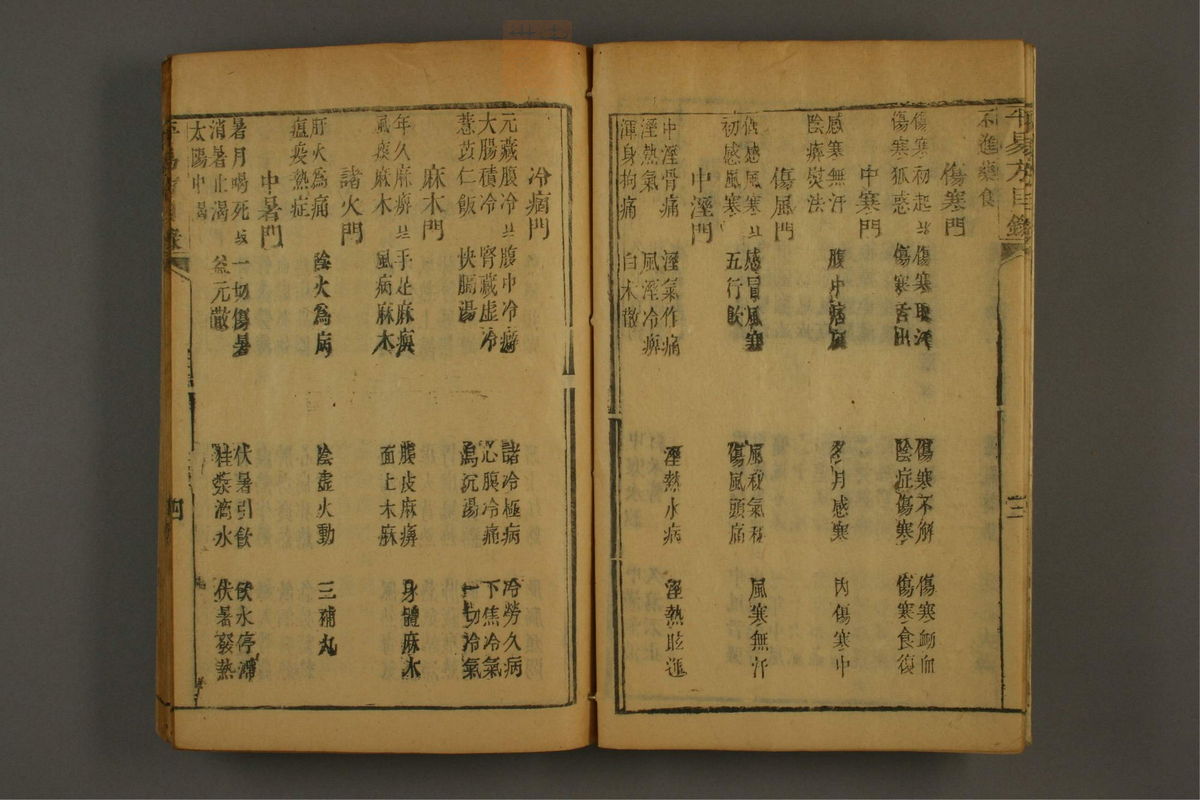 平易方目錄
不進藥食
傷寒門
傷寒初起 傷寒取汗 傷寒不解 傷寒衂血
傷寒狐惑 傷寒舌出 陰症傷寒 傷寒食復
中寒門
感寒無汗 腹中痞 冬月感寒 內傷寒中
陰痺熨法
傷風門
感風寒 感冒風寒 風寒無汗
初感風寒 五行飲 傷風頭痛
中溼門
中溼骨痛 溼氣作痛 溼熱水病 溼熱眩
溼熱氣 風溼冷痺
渾身拘痛 白朮散
三
冷病門
元藏腹冷 腹中冷癖 諸冷極病 冷勞久病
大腸積冷 腎藏虛冷 心腹冷痛 下焦冷氣
薏苡仁飯 快膈湯 沉湯 一切冷氣
麻木門
年久麻痺 手足麻 腹皮麻痺 身體麻木
風痰麻木 風病麻木 面上木麻
諸火門
肝火為痛 陰火為病 陰虛火動 三補丸
瘟疫熱症
中暑門
暑月暍死 一切傷暑 伏暑引飲 飲水停滯
消暑止渴 益元散 桂漿渴水 伏暑發熱
太陽中暍
四